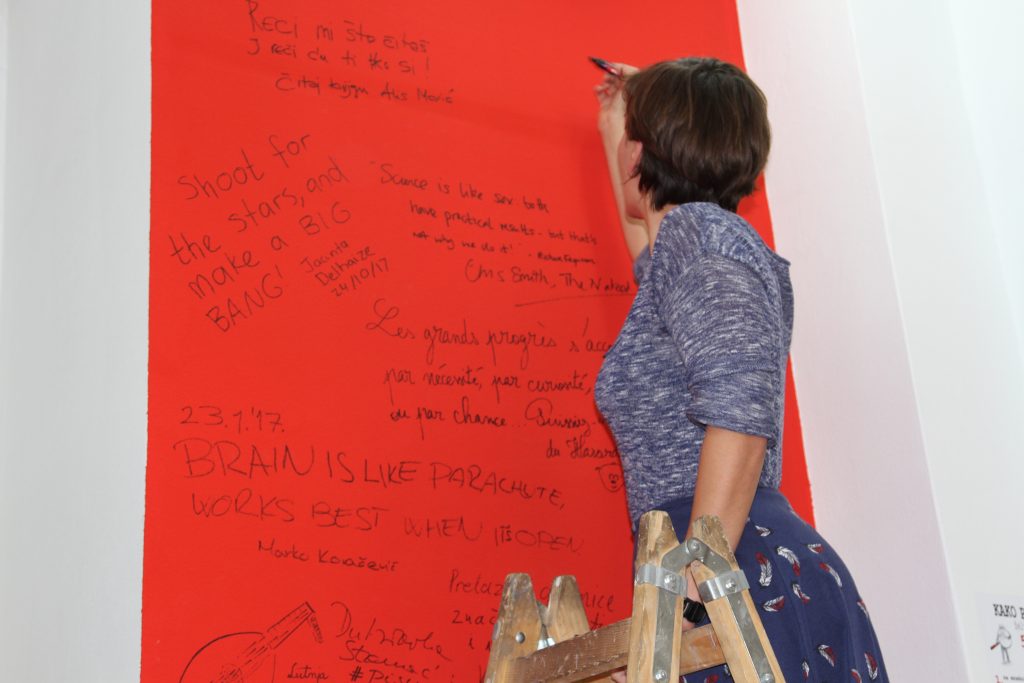 RECI MI ŠTO ČITAŠ
I reći ću ti tko si!
Čitaj knjigu
Shoot for
the stars, and
make a BIG
BANG!
Jacinta
Delhaize
24/10/17
"Science is like sex: both
have practical results - but that's
not why we do it!" -
Chris Smith, The Naked
Les grands progrès s'acc
par nécessité, par curiosité,
ou par chance...
du Hasard
23.1.'17.
BRAIN IS LIKE PARACHUTE,
WORKS BEST WHEN IT'S OPEN.
Marko Košičević
Dubravka
Lutnja
KAKO